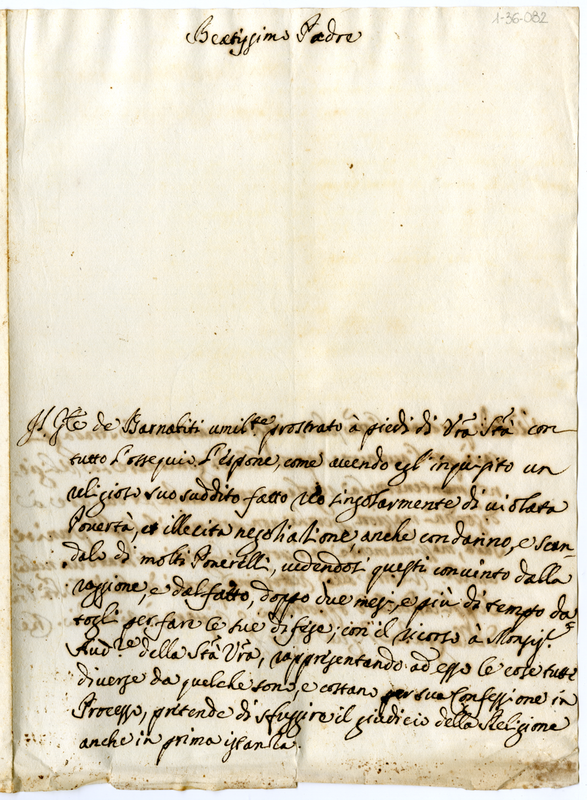 1-36-082
Beatissimo Padre
Il Gle de Barnabiti umilte prostrato à piedi di Vra Stà con
tutto l'ossequio l'espone, come avendo egl' inquisito un
religioso suo suddito fatto reo singolarmente di violata
Povertà, et illecita negoliatione anche con danno, e scan-
dalo di molti Poverelli, vedendosi questi convinto dalla
raggione, e dal fatto, doppo due mesi e più di tempo da-
togli per fare le sue difese; con il ricorso à Monsigr
Audre della Stà Vra, rappresentando ad esso le cose tutte
diverse da quelche sono, e costano per sua Confessione in
Processo, pretende di sfuggire il giudicio della Religione
anche in prima istanza.